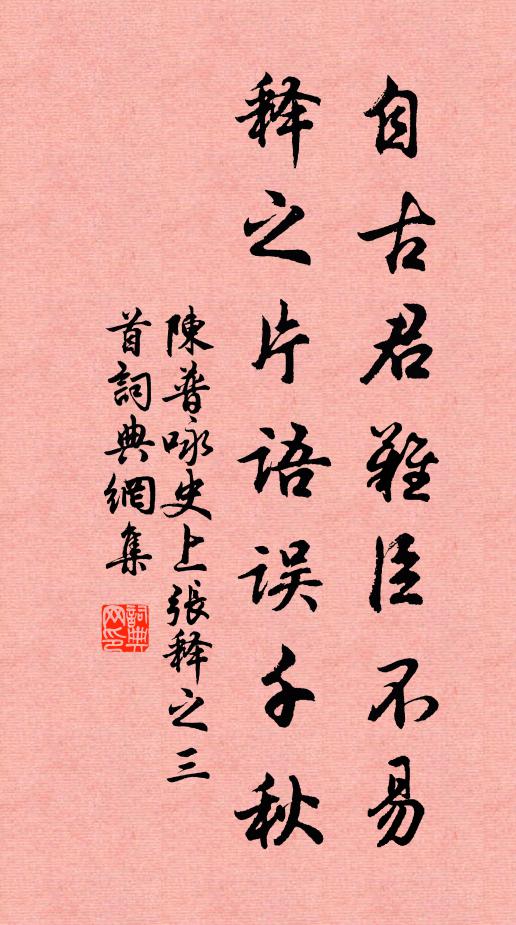 自古君難臣不易
释之片語误千秋
陳普咏史上張释之三
首詞典網集
詞典网印